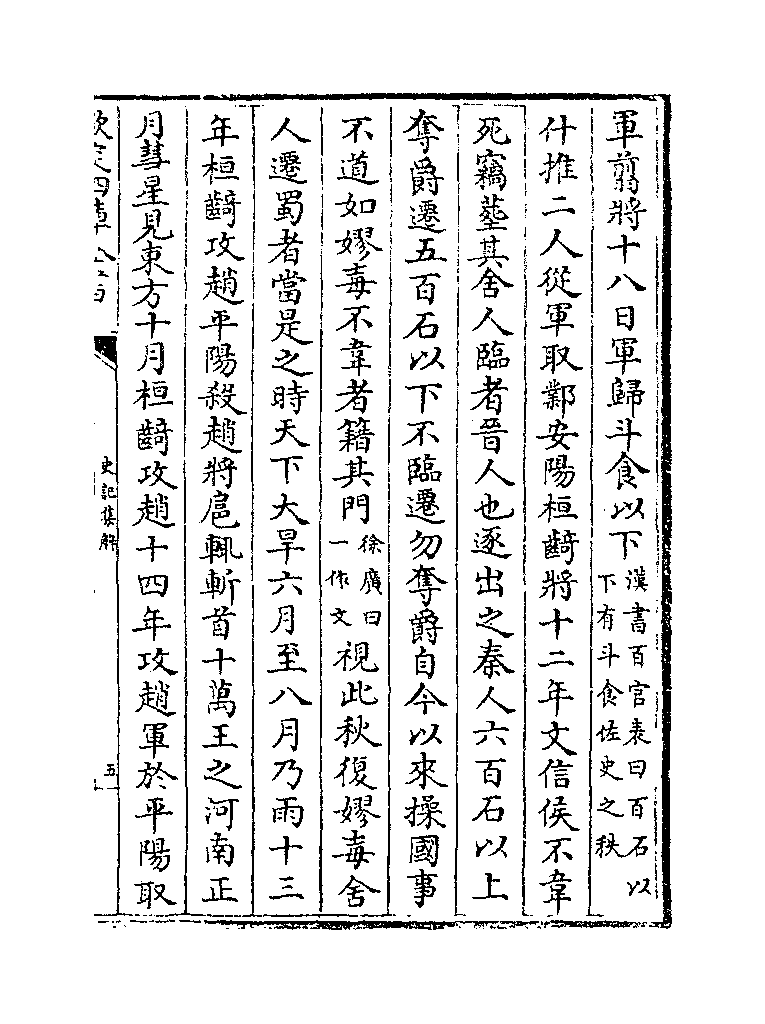 軍翦將十八日軍歸斗食以下漢書百官表曰百石以下有斗食佐史之秩
什推二人從軍取鄴安陽桓齮將十二年文信侯不韋
死竊葬其舍人臨者晉人也逐出之秦人六百石以上
奪爵遷五百石以下不臨遷勿奪爵自今以來操國事
不道如嫪毐不韋者籍其門徐廣曰一作文視此秋復嫪毐舍
人遷蜀者當是之時天下大旱六月至八月乃雨十三
年桓齮攻趙平陽殺趙將扈輒斬首十萬王之河南正
月彗星見東方十月桓齮攻趙十四年攻趙軍於平陽取
欽定四庫全書
史記集解
五